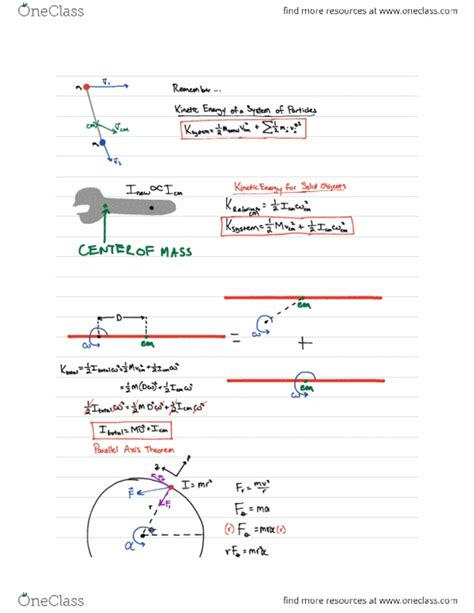 OneClass
find more resources at www.oneclass.com
Remember...
Kinetic Energy of a System of Particles
Ksystem = ½ mtotal vcm² + Σ½ mi vi*²
m₁
v₁
cm
vcm
m₂
v₂
Inew ∝ Icm
CENTER OF MASS
Kinetic Energy for Solid Objects
= ½ Icm ω²cm
Ksystem = ½ M vcm² + ½ Icm ω²cm
D
ω
cm
=
r
cm
ω
+
cm
ω
Ktotal = ½ Itotal ω² = ½ M vcm² + ½ Icm ω²
= ½ M(Dω)² + ½ Icm ω²
½ Itotal ω² = ½ M D² ω² + ½ Icm ω²
Itotal = MD² + Icm
Parallel Axis Theorem
I = mr²
F
r
α
Fr = mv²/r
= ma
(r) = mrα (r)
= mr²α
OneClass
find more resources at www.oneclass.com